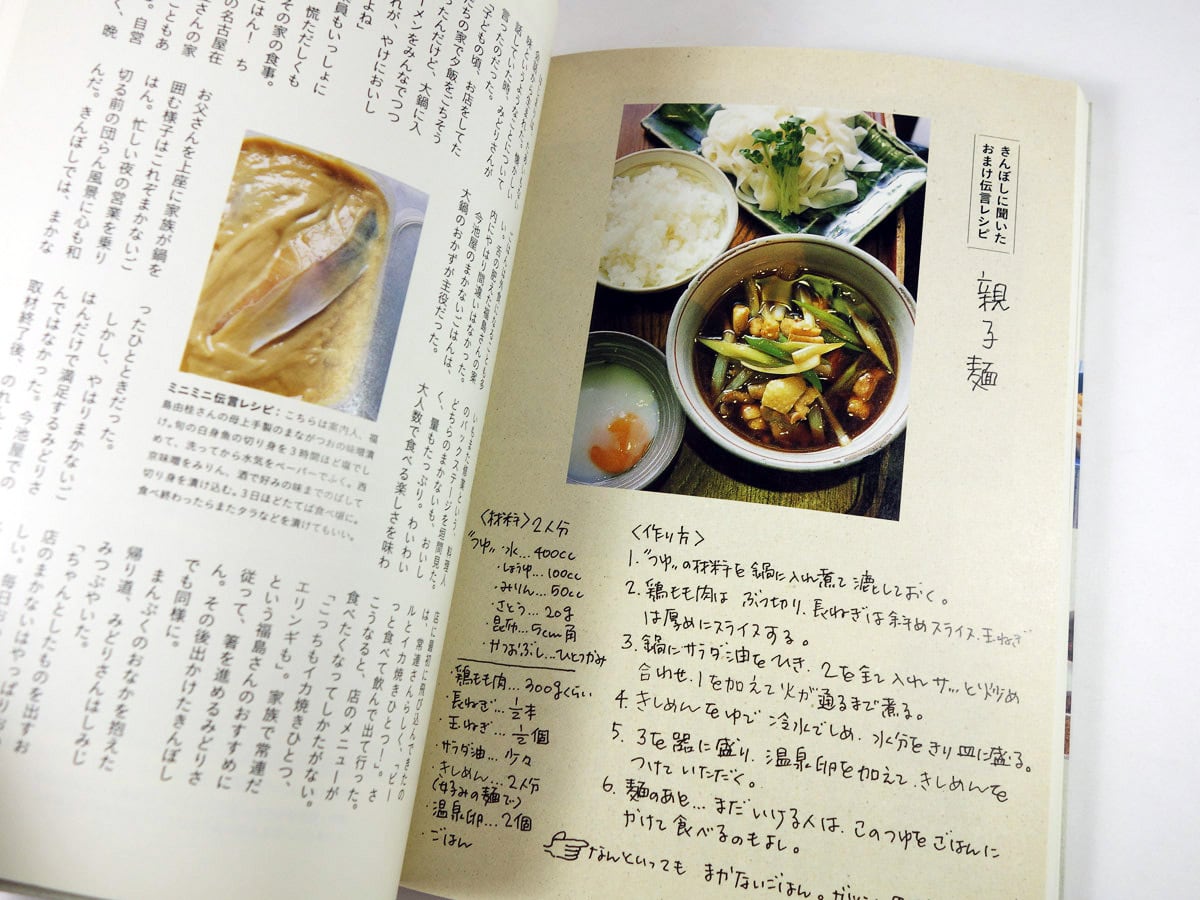 話していた時、みどりさんが
言ったのだった。
「子どもの頃、お店をしてた
たちの家で夕飯をごちそう
ったんだけど、大鍋に入
ーメンをみんなでつつ
れが、やけにおいし
よね」
員もいっしょに
その家の食事。
慌ただしくも
ごはん！　ち
の名古屋在
さんの家
こともあ
自営
く、晩
お父さんを上座に家族が鍋を
囲む様子はこれぞまかないご
はん。忙しい夜の営業を乗り
切る前の団らん風景に心も和
んだ。きんぼしでは、まかな
い。舌の肥えた福島さんの案
内にやはり間違いはなかった。
今池屋のまかないごはんは、
大鍋のおかずが主役だった。
ミニミニ伝言レシピ：こちらは案内人、福
島由桂さんの母上手製のまながつおの味噌漬
け。旬の白身魚の切り身を3時間ほど塩でし
めて、洗ってから水気をペーパーでふく。西
京味噌をみりん、酒で好みの味までのばして
切り身を漬け込む。3日ほどたてば食べ頃に。
食べ終わったらまたタラなどを漬けてもいい。
ったひとときだった。
しかし、やはりまかないご
はんだけで満足するみどりさ
んではなかった。今池屋での
取材終了後、
のれん
のバックステージを垣間見た。
どちらのまかないも、おいし
く、量もたっぷり。わいわい
大人数で食べる楽しさを味わ
店に最初に飛び込んできたの
は、常連さんらしく、「ビー
ルとイカ焼きひとつ！」。さ
っと食べて飲んで出て行った。
こうなると、店のメニューが
食べたくなってしかたがない。
「こっちもイカ焼きひとつ、
エリンギも」。家族で常連だ
という福島さんのおすすめに
従って、箸を進めるみどりさ
ん。その後出かけたきんぼし
でも同様に。
まんぷくのおなかを抱えた
帰り道、みどりさんはしみじ
みつぶやいた。
「ちゃんとしたものを出すお
店のまかないはやっぱりお
しい。毎日
きんぼしに聞いた
おまけ伝言レシピ
親子麺
〈材料〉2人分
"つゆ"・水…400cc
・しょうゆ…100cc
・みりん…50cc
・さとう…20g
・昆布…5cm角
・かつおぶし…ひとつかみ
・鶏もも肉…300gくらい
・長ねぎ…1/2本
・玉ねぎ…1/2個
・サラダ油…少々
・きしめん…2人分
(好みの麺で)
・温泉卵…2個
・ごはん
〈作り方〉
1."つゆ"の材料を鍋に入れ煮て漉しておく。
2. 鶏もも肉は ぶつ切り、長ねぎは斜めスライス、玉ねぎ
は厚めにスライスする。
3. 鍋にサラダ油をひき、2を全て入れ サッと炒め
合わせ、1を加えて火が通るまで煮る。
4. きしめんをゆで 冷水でしめ、水分をきり皿に盛る。
5. 3を器に盛り、温泉卵を加えて、きしめんを
つけていただく。
6. 麺のあと…まだいける人は、このつゆをごはんに
かけて食べるのもよし。
なんといっても まかないごはん。